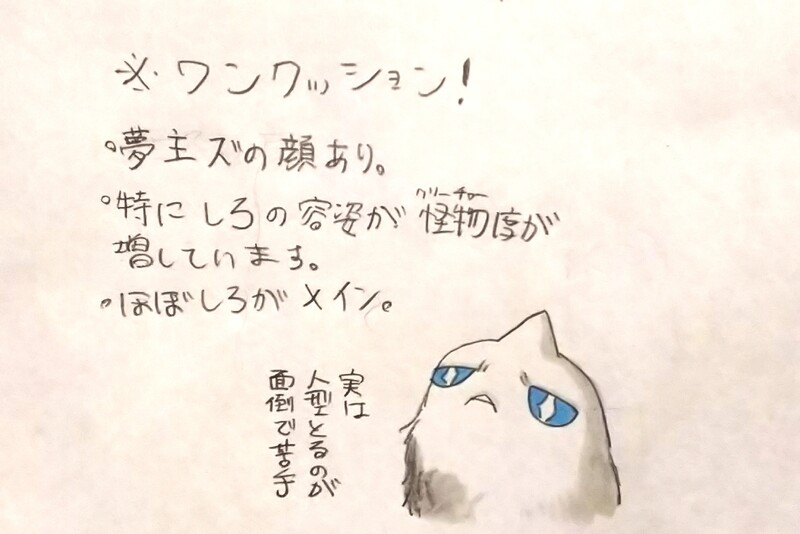 ※ワンクッション!
。夢主ズの顔あり。
。特にしろの容姿が怪物度が
クリーチャー
増しています。
・ほぼしろがメイン。
実は
人型とるのが
面倒で苦手